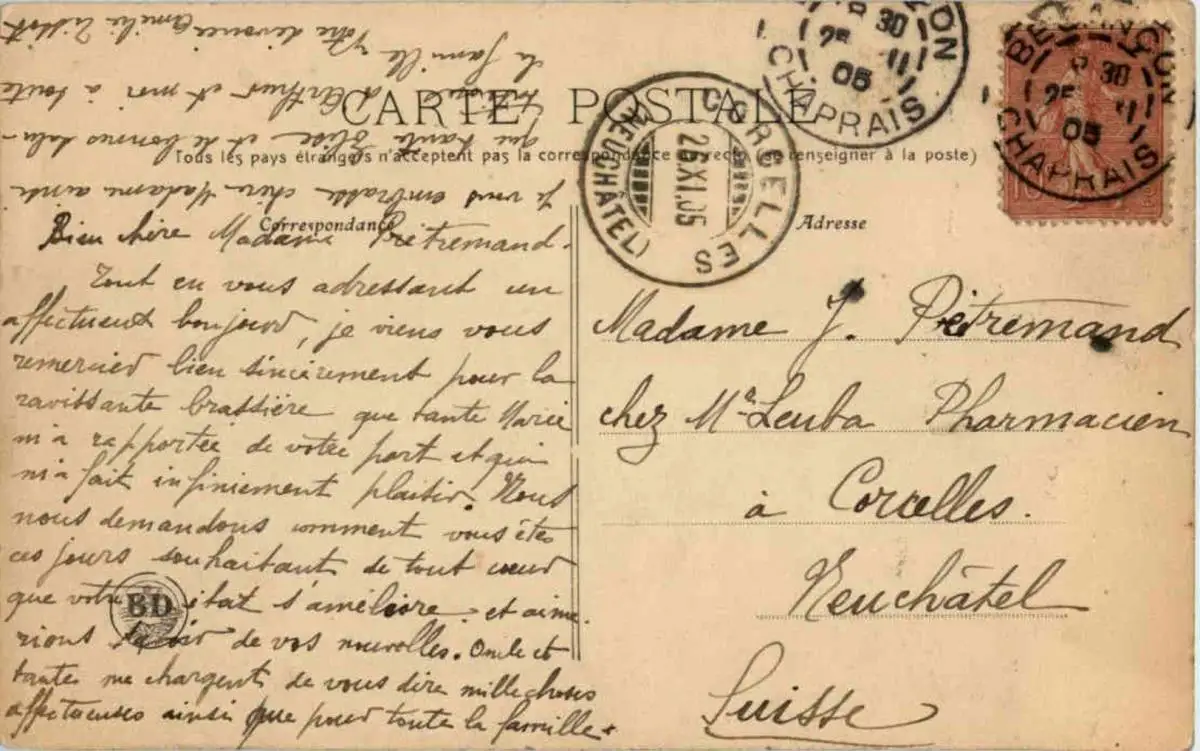 CARTE POSTALE
Tous les pays étrangers n'acceptent pas la correspondance au recto (se renseigner à la poste)
Correspondance
Adresse
BESANÇON
8 30
25 11
05
CHAPRAIS
BESANÇON
8 30
25 11
05
CHAPRAIS
CORCELLES
26 XI. 05
(NEUCHÂTEL)
Bien chère Madame Prêtremand.
Tout en vous adressant un
affectueux bonjour, je viens vous
remercier bien sincèrement pour la
ravissante brassière que tante Marie
m'a rapportée de votre part et qui
m'a fait infiniement plaisir. Nous
nous demandons comment vous êtes
ces jours souhaitant de tout cœur
que votre état s'améliore et aime-
rions savoir de vos nouvelles. Oncle et
tante me chargent de vous dire mille choses
affectueuses ainsi que pour toute la famille.
Je vous embrasse chère Madame ainsi
que tante Elise et de bonnes salu-
d'Arthur et moi à toute
la famille
Votre dévouée Amélie
BD
Madame J. Prêtremand
chez Mr Leuba Pharmacien
à Corcelles.
Neuchâtel
Suisse